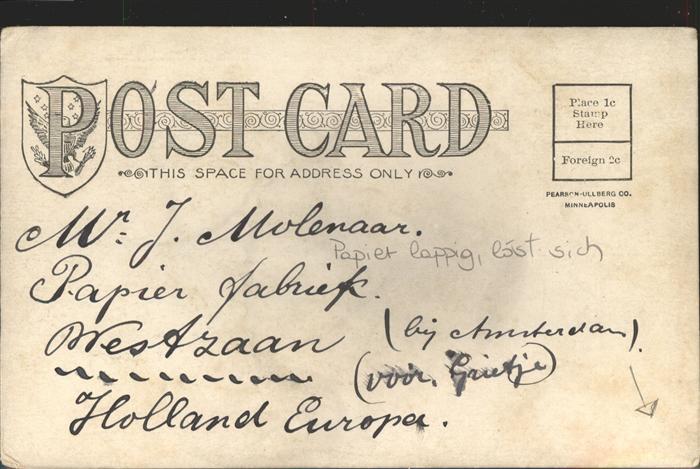 POST CARD
THIS SPACE FOR ADDRESS ONLY
Place 1c
Stamp
Here
Foreign 2c
PEARSON-ULLBERG CO.
MINNEAPOLIS
Mr. J. Molenaar.
Papier lappig, löst sich
Papier fabriek.
Westzaan (bij Amsterdam).
(voor. Grietje)
Holland Europa.